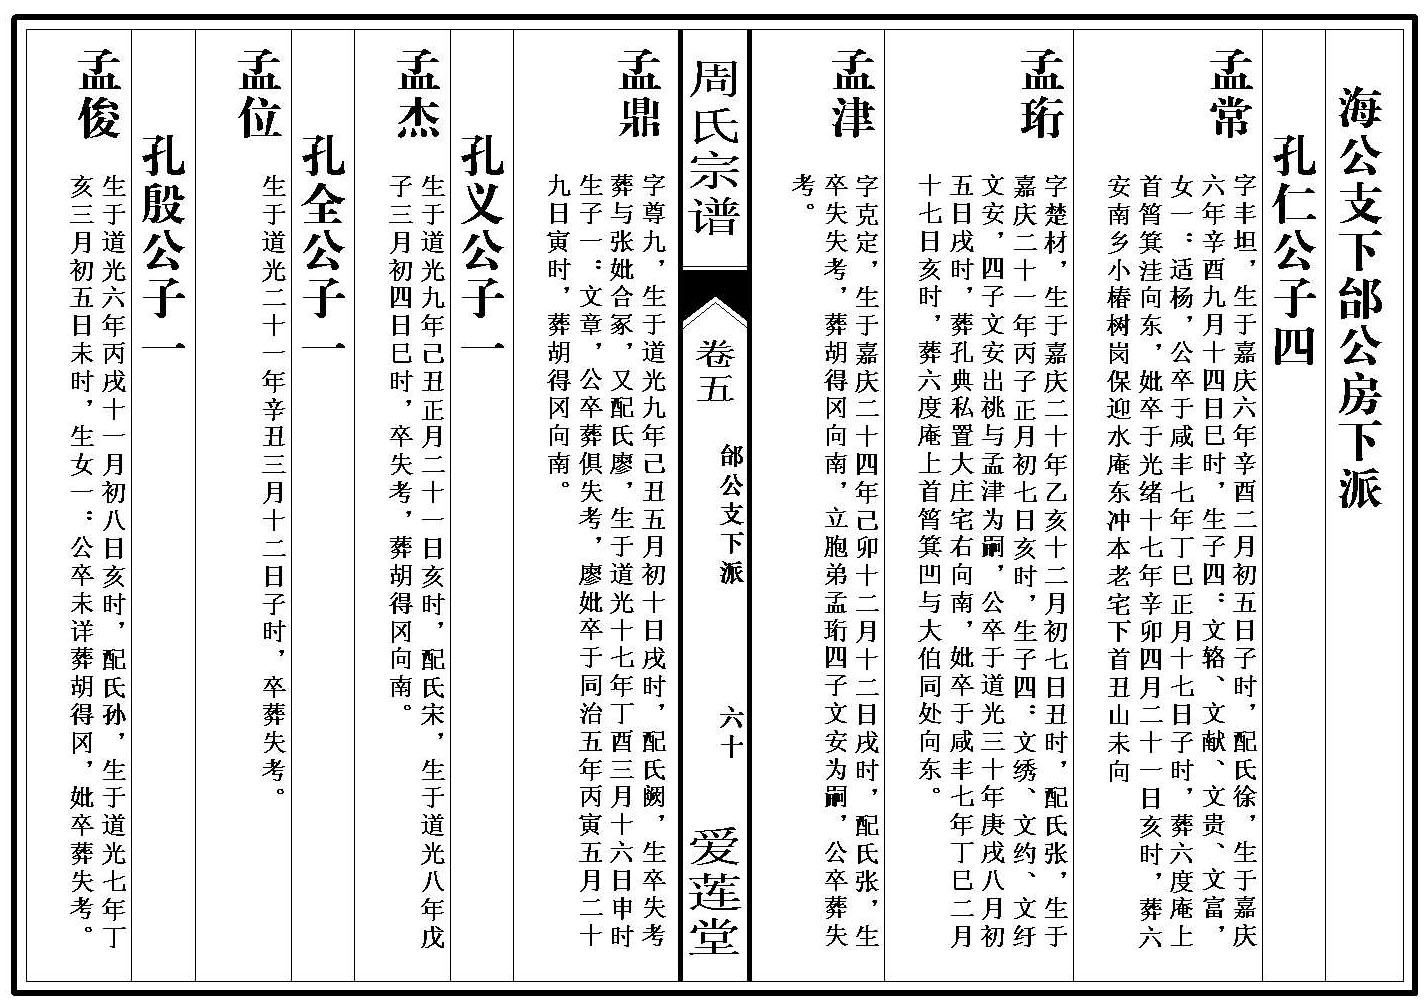 海公支下邰公房下派
孔仁公子四
孟常
字丰坦，生于嘉庆六年辛酉二月初五日子时，配氏徐，生于嘉庆
六年辛酉九月十四日巳时，生子四：文辂、文献、文贵、文富，
女一：适杨，公卒于咸丰七年丁巳正月十七日子时，葬六度庵上
首筲箕洼向东，妣卒于光绪十七年辛卯四月二十一日亥时，葬六
安南乡小椿树岗保迎水庵东冲本老宅下首丑山未向
孟珩
字楚材，生于嘉庆二十年乙亥十二月初七日丑时，配氏张，生于
嘉庆二十一年丙子正月初七日亥时，生子四：文绣、文约、文纡
文安，四子文安出祧与孟津为嗣，公卒于道光三十年庚戌八月初
五日戌时，葬孔典私置大庄宅右向南，妣卒于咸丰七年丁巳二月
十七日亥时，葬六度庵上首筲箕凹与大伯同处向东。
孟津
字克定，生于嘉庆二十四年己卯十二月十二日戌时，配氏张，生
卒失失考，葬胡得冈向南，立胞弟孟珩四子文安为嗣，公卒葬失
考。
周氏宗谱
卷五
邰公支下派
六十
爱莲堂
孟鼎
字尊九，生于道光九年己丑五月初十日戌时，配氏阙，生卒失考
葬与张妣合冢，又配氏廖，生于道光十七年丁酉三月十六日申时
生子一：文章，公卒葬俱失考，廖妣卒于同治五年丙寅五月二十
九日寅时，葬胡得冈向南。
孔义公子一
孟杰
生于道光九年己丑正月二十一日亥时，配氏宋，生于道光八年戊
子三月初四日巳时，卒失考，葬胡得冈向南。
孔全公子一
孟位
生于道光二十一年辛丑三月十二日子时，卒葬失考。
孔殷公子一
孟俊
生于道光六年丙戌十一月初八日亥时，配氏孙，生于道光七年丁
亥三月初五日未时，生女一：公卒未详葬胡得冈，妣卒葬失考。